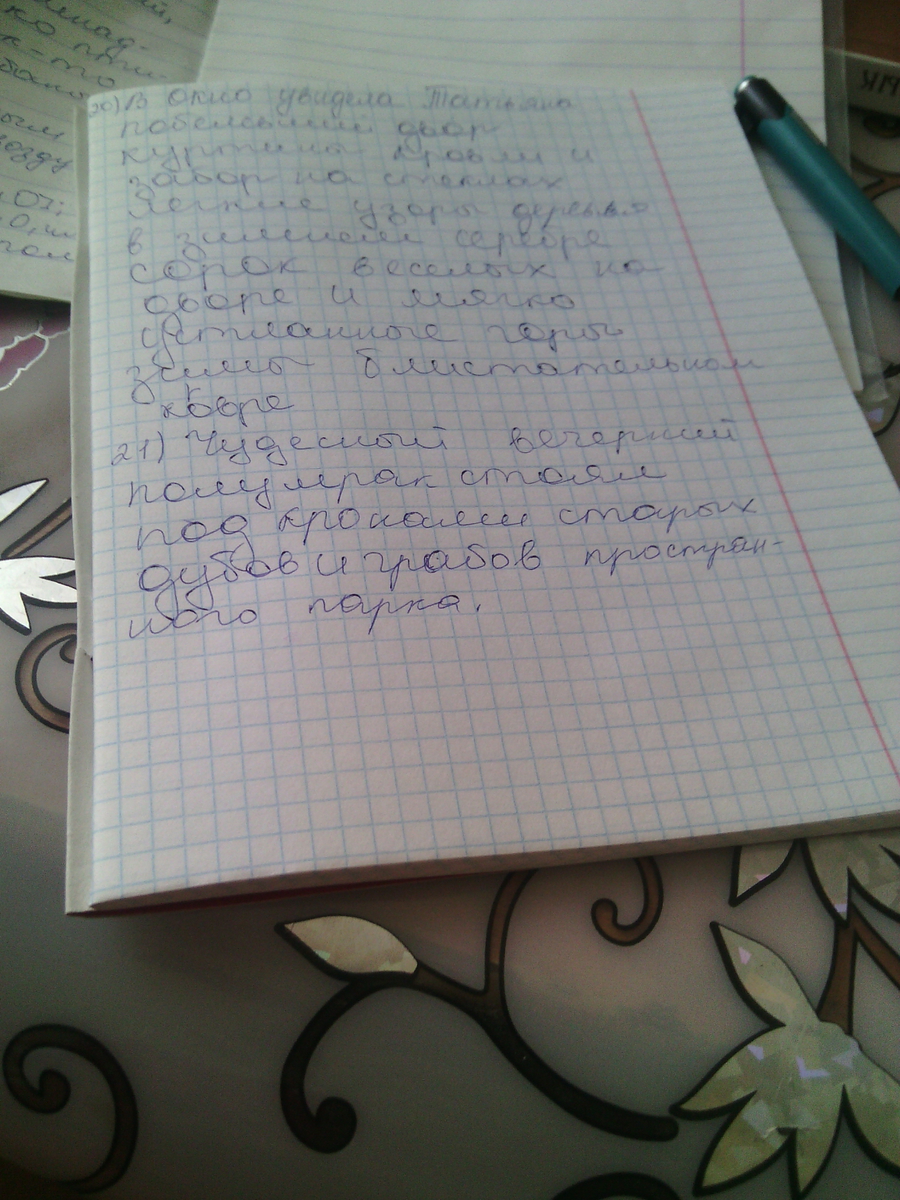 20) В окно увидела Татьяна
побелевший двор
куртины кровли и
забор на стеклах
легкие узоры деревья
в зимнем серебре
сорок веселых на
дворе и мягко
устланные горы
зимы блистательном
ковре
21) Чудесный вечерний
полумрак стоял
под кронами старых
дубов и грабов простран-
ного парка.